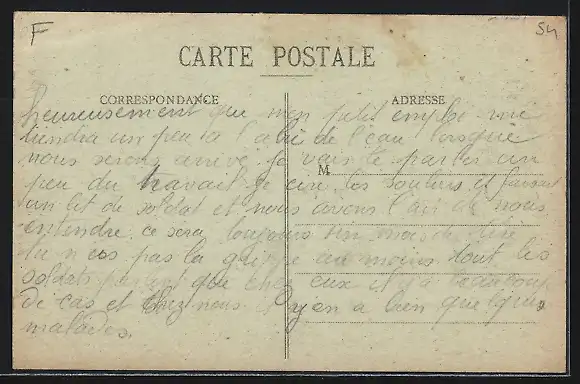 F
54
CARTE POSTALE
CORRESPONDANCE
ADRESSE
heureusement que mon petit emploi me
tiendra un peu à l'abri de l'eau lorsque
nous serons arrivé. Je vais te parler un
M
peu du travail je les souliers et faisait
un lit de soldat et nous avons l'air de nous
entendre ce sera toujours
tu n'as pas la grippe au moins tout les
soldats que chez eux il y a beaucoup
de cas et chez nous il y en a bien quelques
malades.